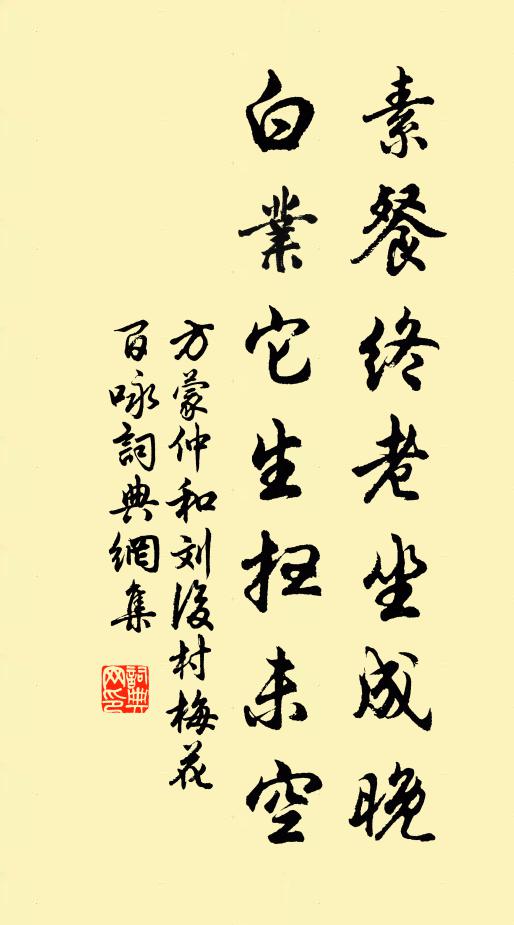 素餐終老坐成晚
白業它生扫未空
方蒙仲和刘後村梅花
百咏詞典網集
詞典網印